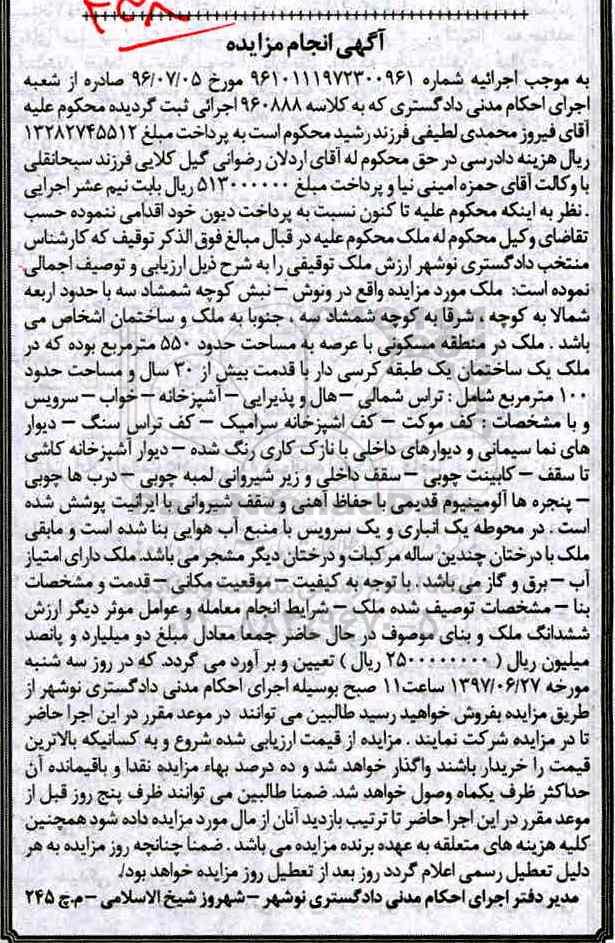 آگهی انجام مزایده
به موجب اجرائیه شماره ۹۶۱۰۱۱۱۹۷۲۳۰۰۹۶۱ مورخ ۹۶/۰۷/۰۵ صادره از شعبه
اجرای احکام مدنی دادگستری که به کلاسه ۹۶۰۸۸۸ اجرائی ثبت گردیده محکوم علیه
آقای فیروز محمدی لطیفی فرزند رشید محکوم است به پرداخت مبلغ ۱۳۲۸۲۷۴۵۵۱۲
ریال هزینه دادرسی در حق محکوم له آقای اردلان رضوانی گیل کلایی فرزند سبحانقلی
با وکالت آقای حمزه امینی نیا و پرداخت مبلغ ۵۱۳۰۰۰۰۰۰ ریال بابت نیم عشر اجرایی
. نظر به اینکه محکوم علیه تا کنون نسبت به پرداخت دیون خود اقدامی ننموده حسب
تقاضای وکیل محکوم له ملک محکوم علیه در قبال مبالغ فوق الذکر توقیف که کارشناس
منتخب دادگستری نوشهر ارزش ملک توقیفی را به شرح ذیل ارزیابی و توصیف اجمالی
نموده است: ملک مورد مزایده واقع در ونوش – نبش کوچه شمشاد سه با حدود اربعه
شمالا به کوچه ، شرقا به کوچه شمشاد سه ، جنوبا به ملک و ساختمان اشخاص می
باشد . ملک در منطقه مسکونی با عرصه به مساحت حدود ۵۵۰ مترمربع بوده که در
ملک یک ساختمان یک طبقه کرسی دار با قدمت بیش از ۳۰ سال و مساحت حدود
۱۰۰ مترمربع شامل : تراس شمالی – هال و پذیرایی – آشپزخانه – خواب – سرویس
و با مشخصات : کف موکت – کف اشپزخانه سرامیک – کف تراس سنگ – دیوار
های نما سیمانی و دیوارهای داخلی با نازک کاری رنگ شده – دیوار آشپزخانه کاشی
تا سقف – کابینت چوبی – سقف داخلی و زیر شیروانی لمبه چوبی – درب ها چوبی
– پنجره ها آلومینیوم قدیمی با حفاظ آهنی و سقف شیروانی با ایرانیت پوشش شده
است . در محوطه یک انباری و یک سرویس با منبع آب هوایی بنا شده است و مابقی
ملک با درختان چندین ساله مرکبات و درختان دیگر مشجر می باشد. ملک دارای امتیاز
آب – برق و گاز می باشد . با توجه به کیفیت – موقعیت مکانی – قدمت و مشخصات
بنا – مشخصات توصیف شده ملک – شرایط انجام معامله و عوامل موثر دیگر ارزش
ششدانگ ملک و بنای موصوف در حال حاضر جمعا معادل مبلغ دو میلیارد و پانصد
میلیون ریال ( ۲۵۰۰۰۰۰۰۰۰ ریال ) تعیین و بر آورد می گردد. که در روز سه شنبه
مورخه ۱۳۹۷/۰۶/۲۷ ساعت۱۱ صبح بوسیله اجرای احکام مدنی دادگستری نوشهر از
طریق مزایده بفروش خواهید رسید طالبین می توانند در موعد مقرر در این اجرا حاضر
تا در مزایده شرکت نمایند . مزایده از قیمت ارزیابی شده شروع و به کسانیکه بالاترین
قیمت را خریدار باشند واگذار خواهد شد و ده درصد بهاء مزایده نقدا و باقیمانده آن
حداکثر ظرف یکماه وصول خواهد شد. ضمنا طالبین می توانند ظرف پنج روز قبل از
موعد مقرر در این اجرا حاضر تا ترتیب بازدید آنان از مال مورد مزایده داده شود همچنین
کلیه هزینه های متعلقه به عهده برنده مزایده می باشد . ضمنا چنانچه روز مزایده به هر
دلیل تعطیل رسمی اعلام گردد روز بعد از تعطیل روز مزایده خواهد بود/.
مدیر دفتر اجرای احکام مدنی دادگستری نوشهر – شهروز شیخ الاسلامی – م.چ ۲۴۵